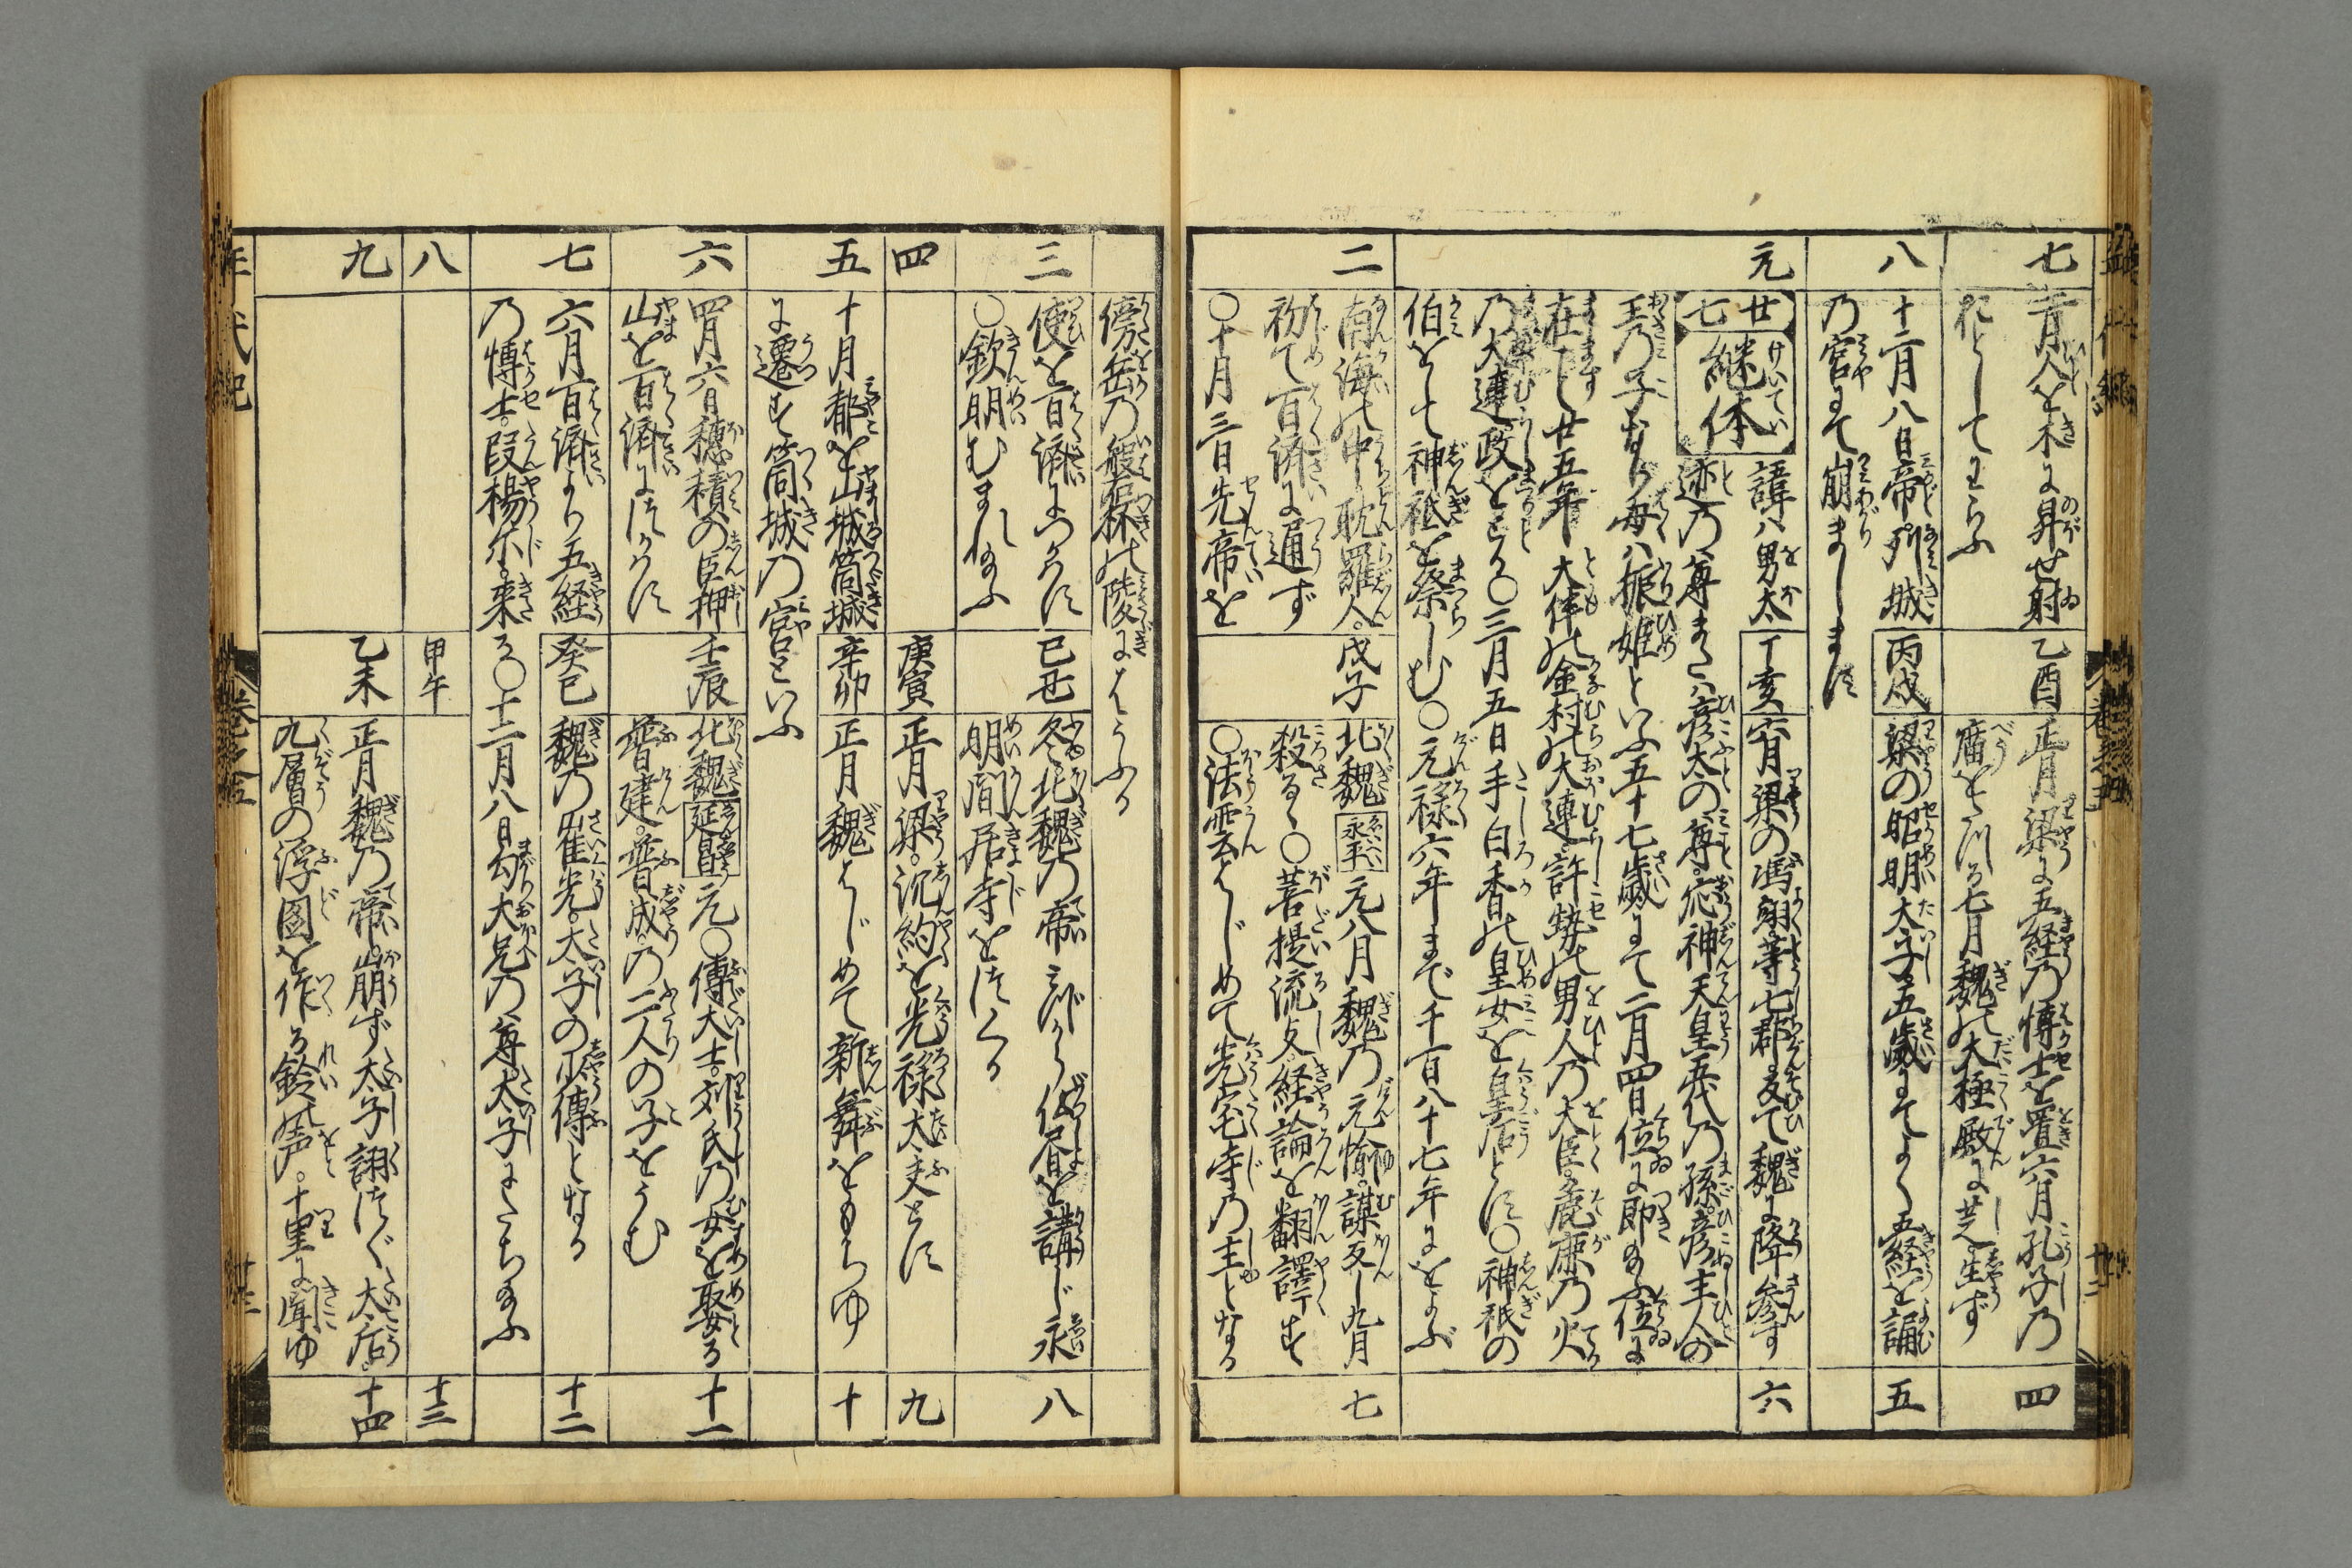 七
青月人を木に昇せ射
おとしてわらふ
乙酉
正月梁に五経乃博士を置六月孔子乃
廟をたつる七月魏の大極殿に芝生ず
四
八
十二月八日帝列城
乃宮にて崩まします
丙戌
梁の昭明太子五歳にてよく五経を誦
五
元
廿七
継体
諱ハ男太
丁亥
六月梁の馮翊等七郡反て魏に降参す
六
迹乃尊または彦太の尊応神天皇五代乃孫彦主人の
王乃子なり母ハ振姫といふ五十七歳にて二月四日位に即給ふ位に
在し廿五年大伴の金村の大連許勢の男人乃大臣麁鹿乃火
乃大連政をとる〇三月五日手白香の皇女を皇后とす〇神祇の
伯をして神祇を祭しむ〇元禄六年まで千百八十七年にをよぶ
二
南海の中耽羅人
初て百済に通ず
〇十月三日先帝を
戊子
北魏永平元八月魏乃元愉謀反し九月
殺る〇菩提流支経論を翻訳す
〇法雲はじめて光宅寺乃主となる
七
傍丘乃磐杯の陵にはうふる
三
使を百済につかはす
〇欽明むまれ給ふ
己丑
冬北魏乃帝みづから仏書を講じ永
明間居寺をたつくる
八
四
庚寅
正月梁沈約を光禄大夫とす
九
五
十月都を山城筒城
に遷す筒城乃宮といふ
辛卯
正月魏はじめて新舞をもちゆ
十
六
四月六日穂積の臣押
山を百済につかはす
壬辰
北魏延昌元〇傅大士劉氏乃女を娶る
普建普成の二人の子をうむ
十一
七
六月百済より五経
乃博士段楊尓来
る〇十二月八日勾大兄乃尊太子にたち給ふ
癸巳
魏乃崔光太子の少傅となる
十二
八
甲午
十三
九
乙未
正月魏乃帝崩ず太子詡たつぐ太后
九層の浮図を作る鈴の声十里に聞ゆ
十四
年代記
巻之五
廿三